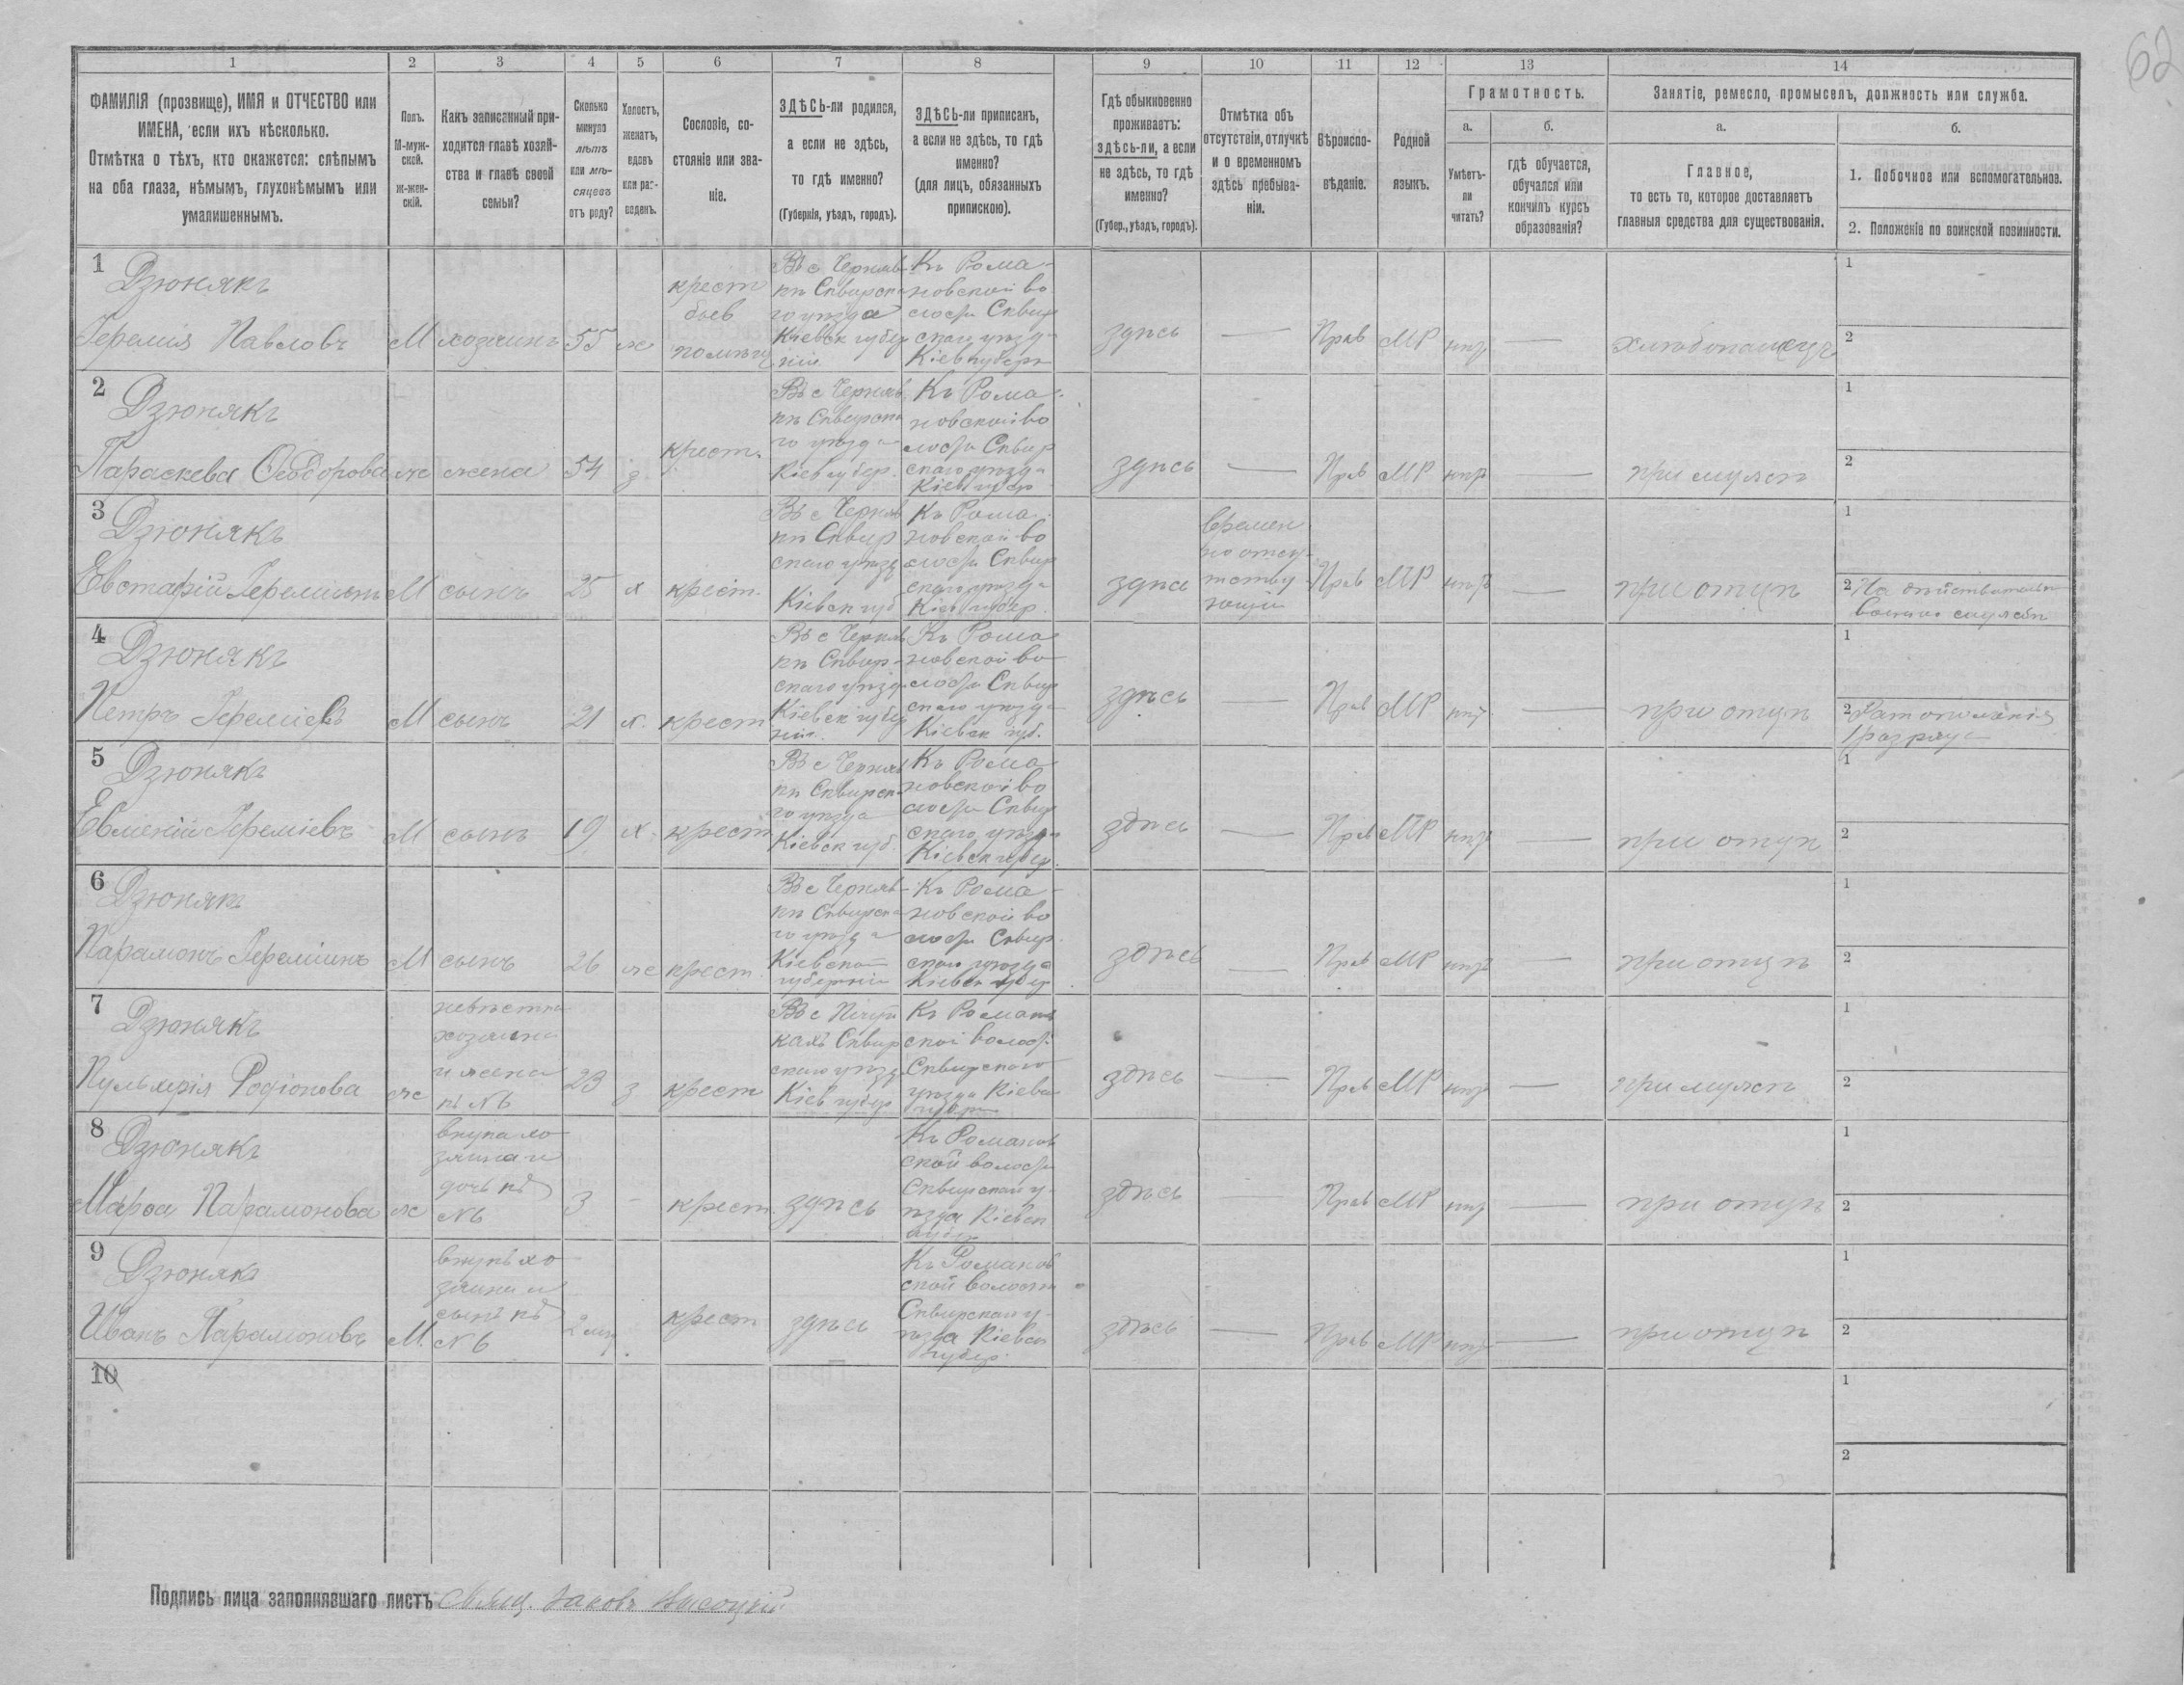 62
1 2 3 4 5 6 7 8 9 10 11 12 13 14
ФАМИЛІЯ (прозвище), ИМЯ и ОТЧЕСТВО или
ИМЕНА, если ихъ нѣсколько.
Отмѣтка о тѣхъ, кто окажется: слѣпымъ
на оба глаза, нѣмымъ, глухонѣмымъ или
умалишеннымъ.
Полъ.
М-муж-
ской.
Ж-жен-
скій.
Какъ записанный при-
ходится главѣ хозяй-
ства и главѣ своей
семьи?
Сколько
минуло
лѣтъ
или мѣ-
сяцевъ
отъ роду?
Холостъ,
женатъ,
вдовъ
или раз-
веденъ.
Сословіе, со-
стояніе или зва-
ніе.
ЗДѢСЬ-ли родился,
а если не здѣсь,
то гдѣ именно?
(Губернія, уѣздъ, городъ).
ЗДѢСЬ-ли приписан,
а если не здѣсь, то гдѣ
именно?
(для лицъ, обязанныхъ
припискою).
Гдѣ обыкновенно
проживаетъ:
здѣсь-ли, а если
не здѣсь, то гдѣ
именно?
(Губер., уѣздъ, городъ).
Отмѣтка объ
отсутствіи, отлучкѣ
и о временномъ
здѣсь пребыва-
ніи.
Вѣроиспо-
вѣданіе.
Родной
языкъ.
Грамотность.
а.
Умѣетъ-
ли
читать?
б.
гдѣ обучается,
обучался или
кончилъ курсъ
образованія?
Занятіе, ремесло, промыселъ, должность или служба.
а.
Главное,
то есть то, которое доставляетъ
главныя средства для существованія.
б.
1. Побочное или вспомогательное.
2. Положеніе по воинской повинности.
1
Дзюнякъ
Іеремія Павловъ
М
хозяинъ
55
ж
крест
бывъ
помѣщ
Въ с Черняв
кѣ Сквирска
го уѣзда
Кіевск губер
ніи
Къ Рома-
новской во
лости Сквир
скаго уѣзда
Кіев губерн
здѣсь
—
Прав
МР
нѣт
—
хлѣбопашецъ
1
2
2
Дзюнякъ
Параскева Ѳеодорова
ж
жена
54
з
крест.
Въ с Черняв
кѣ Сквирска
го уѣзда
Кіев губер.
Къ Рома-
новской во
лости Сквир
скаго уѣзда
Кіев губер
здѣсь
—
Прав
МР
нѣт
—
при мужѣ
1
2
3
Дзюнякъ
М
сынъ
25
х
крест.
Въ с Черняв
кѣ Сквир
скаго уѣзд
Кіевск губ
Къ Рома-
новской во
лости Сквир
скаго уѣзда
Кіев губер.
здѣсь
времен
но отсу-
тству
ющій
Прав
МР
нѣт
—
при отцѣ
1
2 На дѣйствительн
военно службѣ
4
Дзюнякъ
Петръ Іереміевъ
М
сынъ
21
х.
крест
Въ с Черняв
кѣ Сквир-
скаго уѣзд
Кіевск губер
ніи.
Къ Рома
новской во
лости Сквир
скаго уѣзда
Кіевск губ.
здѣсь
—
Прав
МР
нѣт
—
при отцѣ
1
2 Рат ополченія
1 разряда
5
Дзюнякъ
Евменій Іереміевъ
М
сынъ
19
х.
крест
Въ с Черняв
кѣ Сквирска
го уѣзда
Кіевск губ.
Къ Рома
новской во
лости Сквир
скаго уѣзда
Кіевск губер.
здѣсь
—
Прав
МР
нѣт
—
при отцѣ
1
2
6
Дзюняк
М
сынъ
26
ж
крест
Въ с Черняв-
кѣ Сквирска
го уѣзда
Кіевской
губерніи
Къ Рома-
новской во
лости Сквир.
скаго уѣзда
Кіевск губер.
здѣсь
—
Прав
МР
нѣт
—
при отцѣ
1
2
7
Дзюнякъ
Пульхерія Родіонова
ж
невѣстка
хозяина
и жена
къ №6
23
з
крест
кахъ Сквир
скаго уѣзд
Кіев губер
Къ Романов
ской волост.
Сквирскаго
уѣзда Кіевск
губер
здѣсь
Прав
МР
нѣт
—
при мужѣ
1
2
8
Дзюнякъ
Марѳа Парамонова
ж
внука хо
зяина и
дочь къ
№6
3
-
крест.
здѣсь
Къ Романов
ской волости
Сквирскаго у-
ѣзда Кіевск
губер
здѣсь
Прав
МР
нѣт
—
при отцѣ
1
2
9
Дзюняк
Иванъ Парамоновъ
М.
внукъ хо
зяина и
сынъ къ
№6
2 мѣс
крест
здѣсь
Къ Романов
ской волости
Сквирскаго у-
ѣзда Кіевск
губер.
здѣсь
—
Прав
МР
нѣт
—
при отцѣ
1
2
10
1
2
Подпись лица заполнявшаго листъ Свящ. Іаковъ Высоцкій